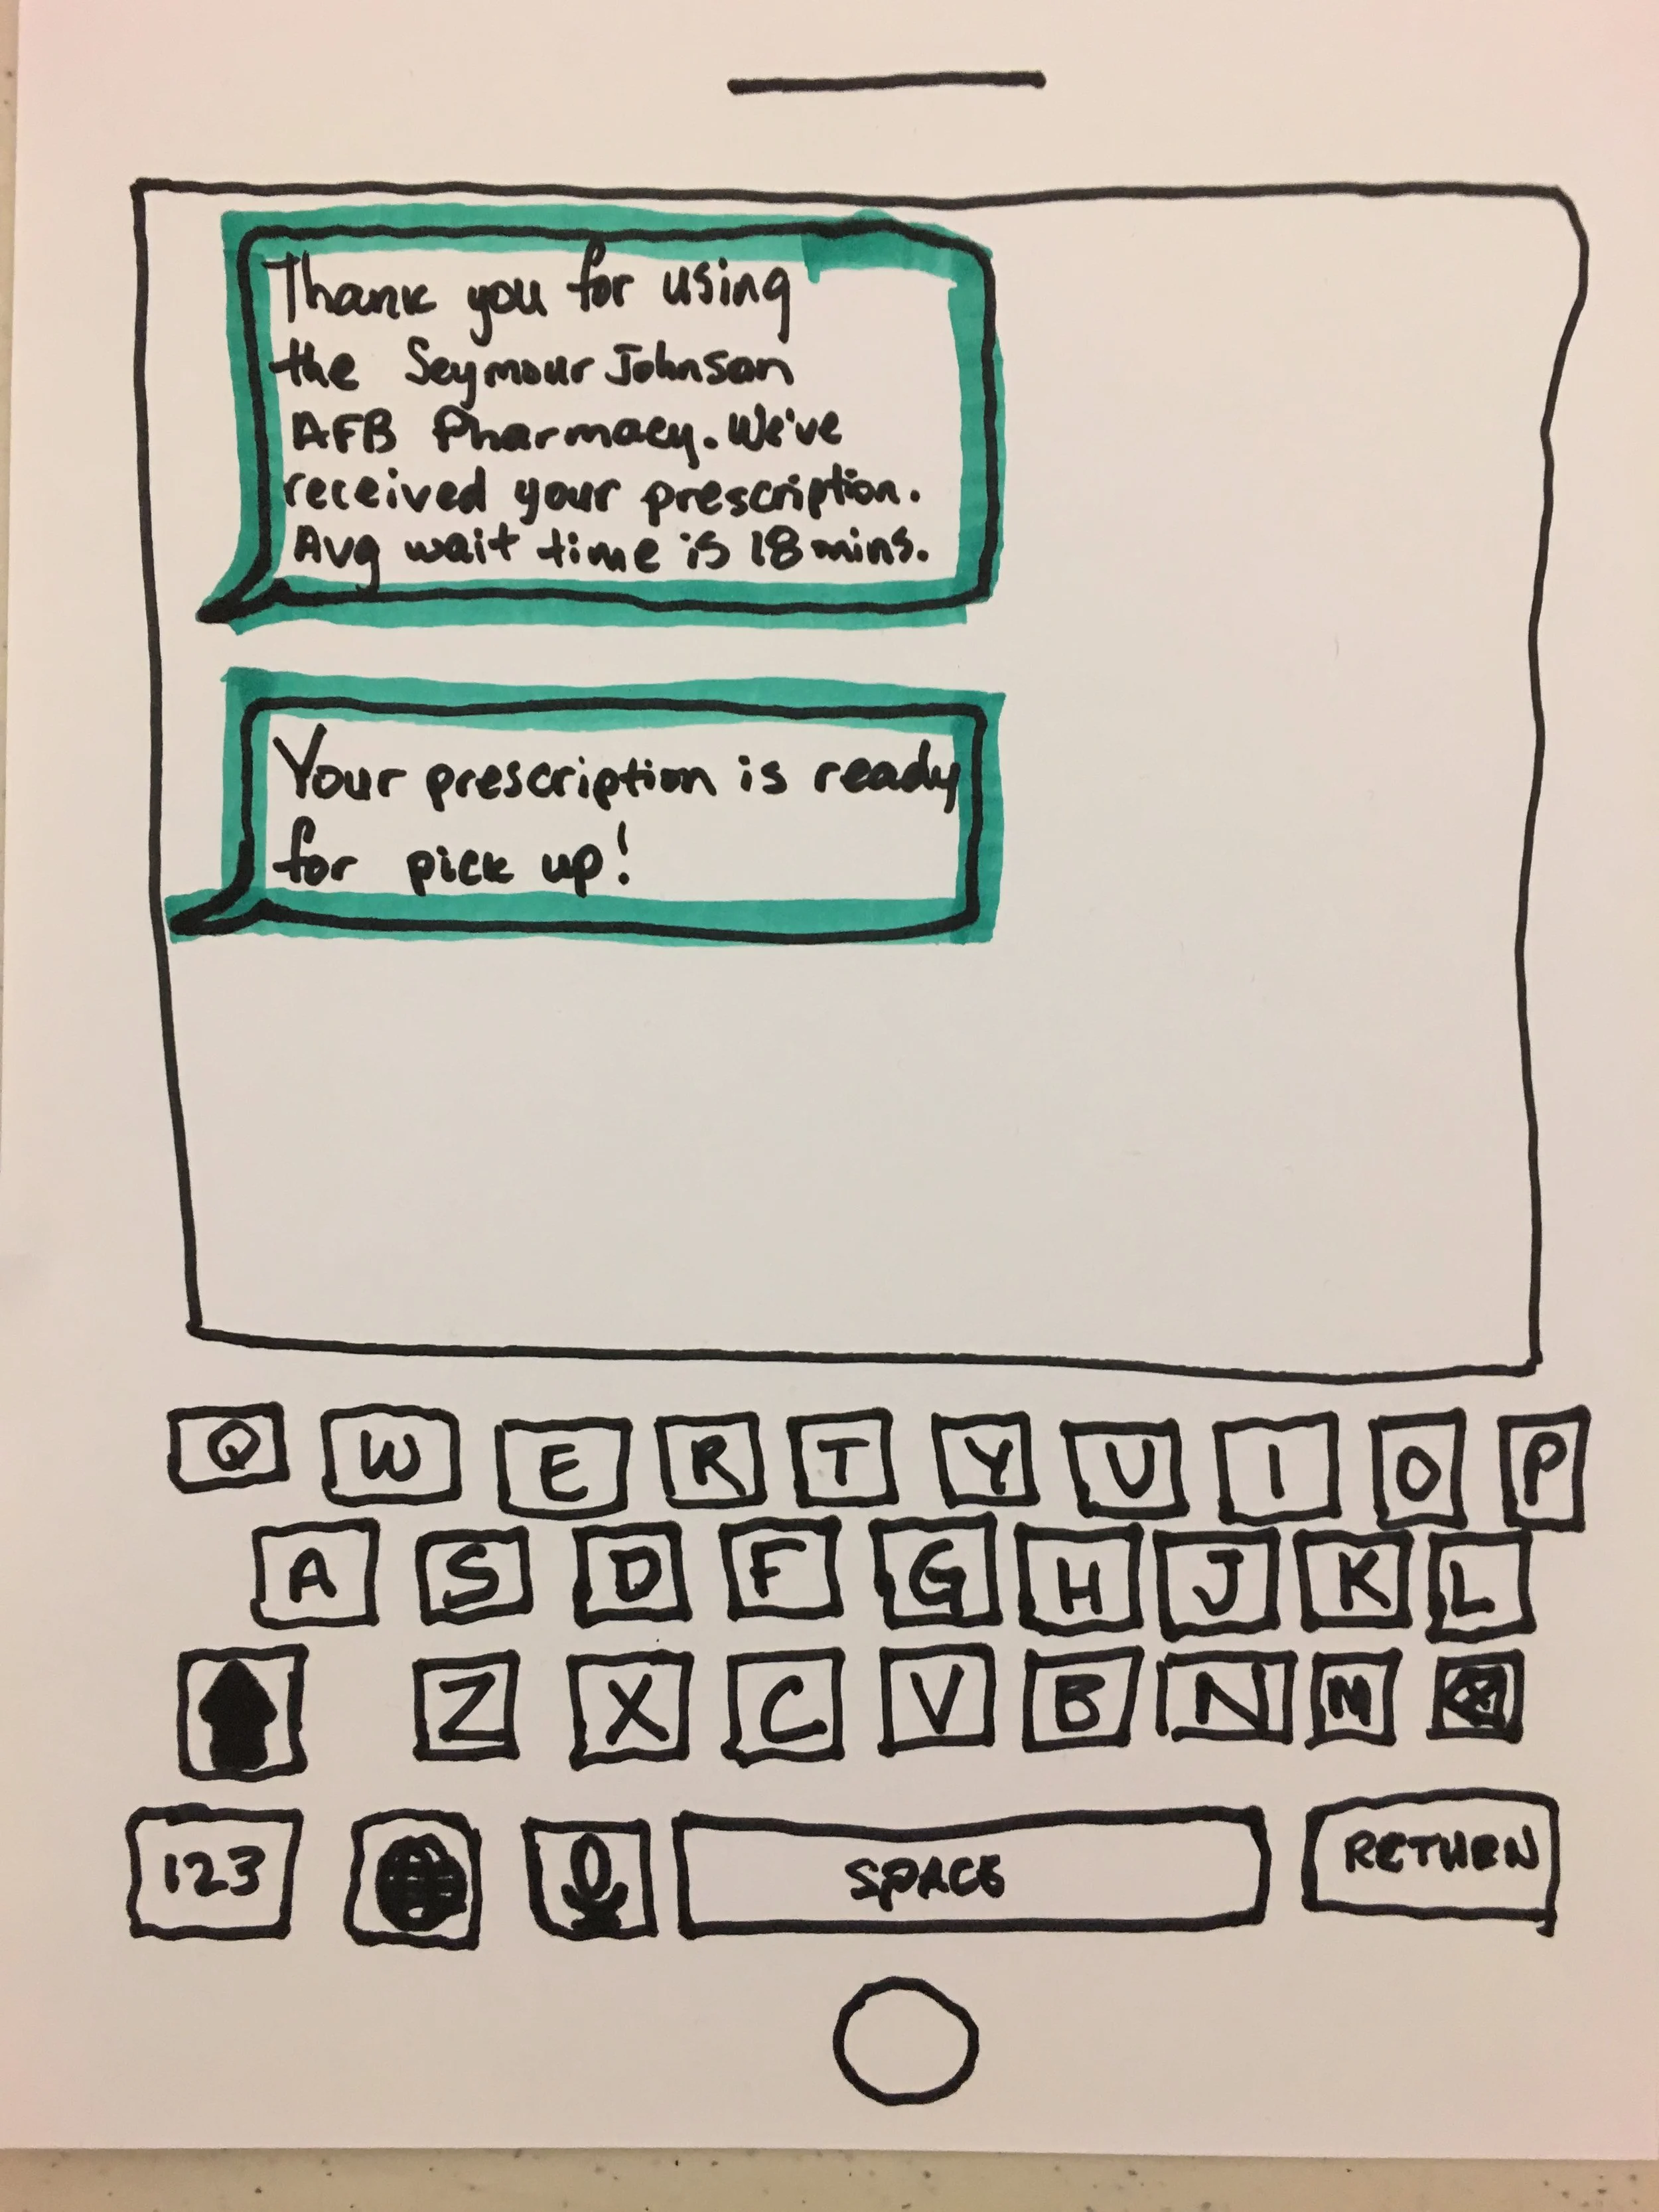 Thank you for using
the Seymour Johnson
AFB Pharmacy. We've
received your prescription.
Avg wait time is 18 mins.
Your prescription is ready
for pick up!
Q W E R T Y U I O P
A S D F G H J K L
Z X C V B N M
123 SPACE RETURN